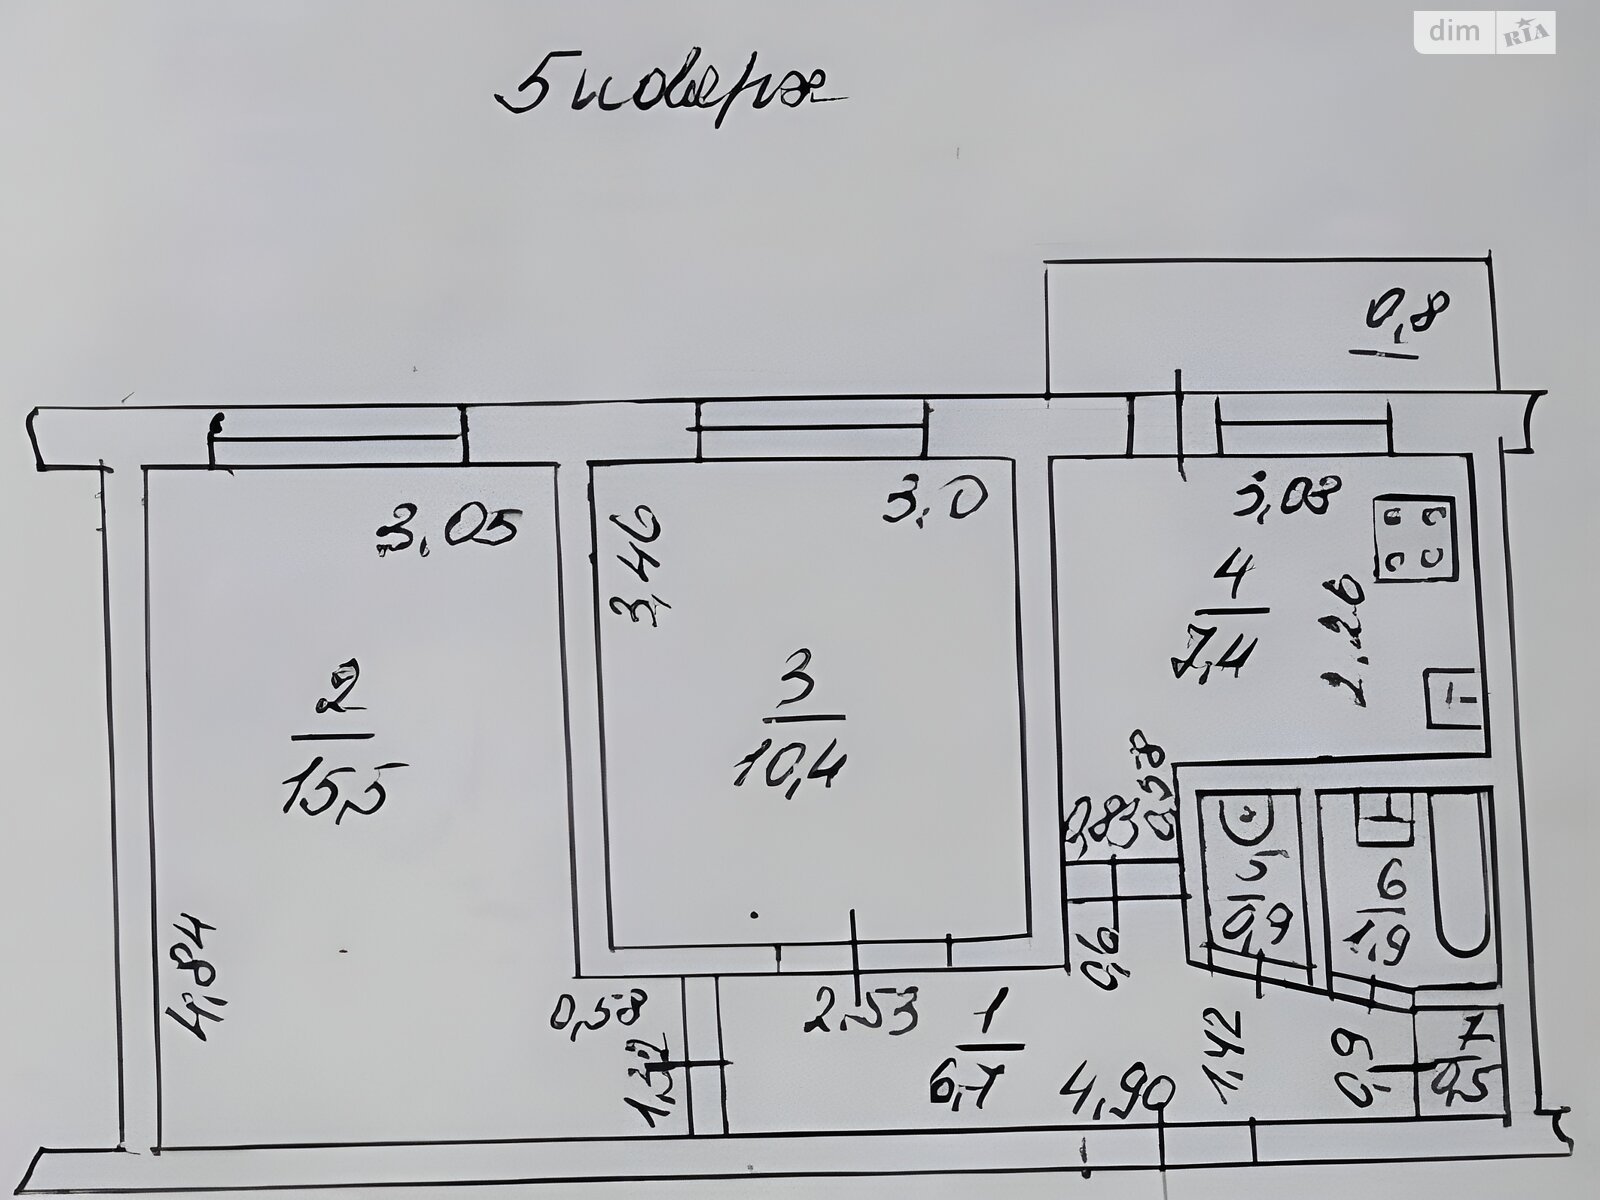 dim RIA
5 поверх
0,8
3,05
3,0
3,03
3,46
4
7,4
2.26
2
15,5
3
10,4
0,58
0,83
5
0,9
6
1,9
4,84
0,6
0,58
2.53
1
6,7
1.32
4,90
1,42
0,9
7
0,5